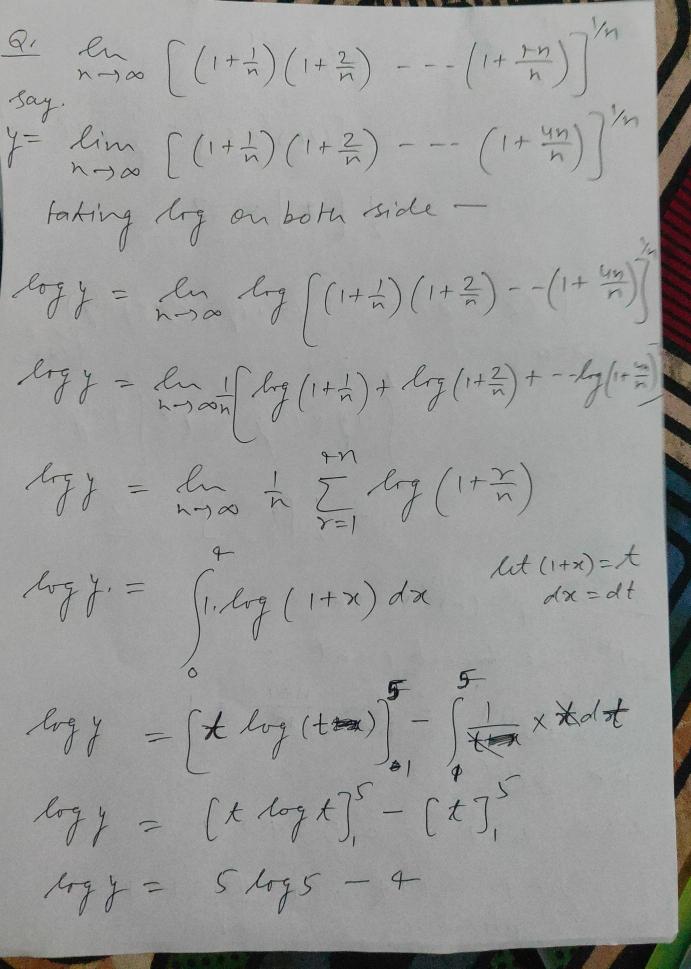 Q. lim n→∞ [(1+1/n)(1+2/n) --- (1+4n/n)]^1/n
say.
y= lim n→∞ [(1+1/n)(1+2/n) --- (1+4n/n)]^1/n
taking log on both side —
log y = lim n→∞ log [(1+1/n)(1+2/n) --(1+4n/n)]^1/n
log y = lim n→∞ 1/n [log (1+1/n) + log (1+2/n) + --log (1+4n/n)
log y = lim n→∞ 1/n ∑_{r=1}^{4n} log (1+r/n)
log y. = ∫_0^4 1. log (1+x) dx let (1+x) = t
dx = dt
log y = [t log (t)]_1^5 - ∫_1^5 1/t × t dt
log y = [t log t]_1^5 - [t]_1^5
log y = 5 log 5 - 4